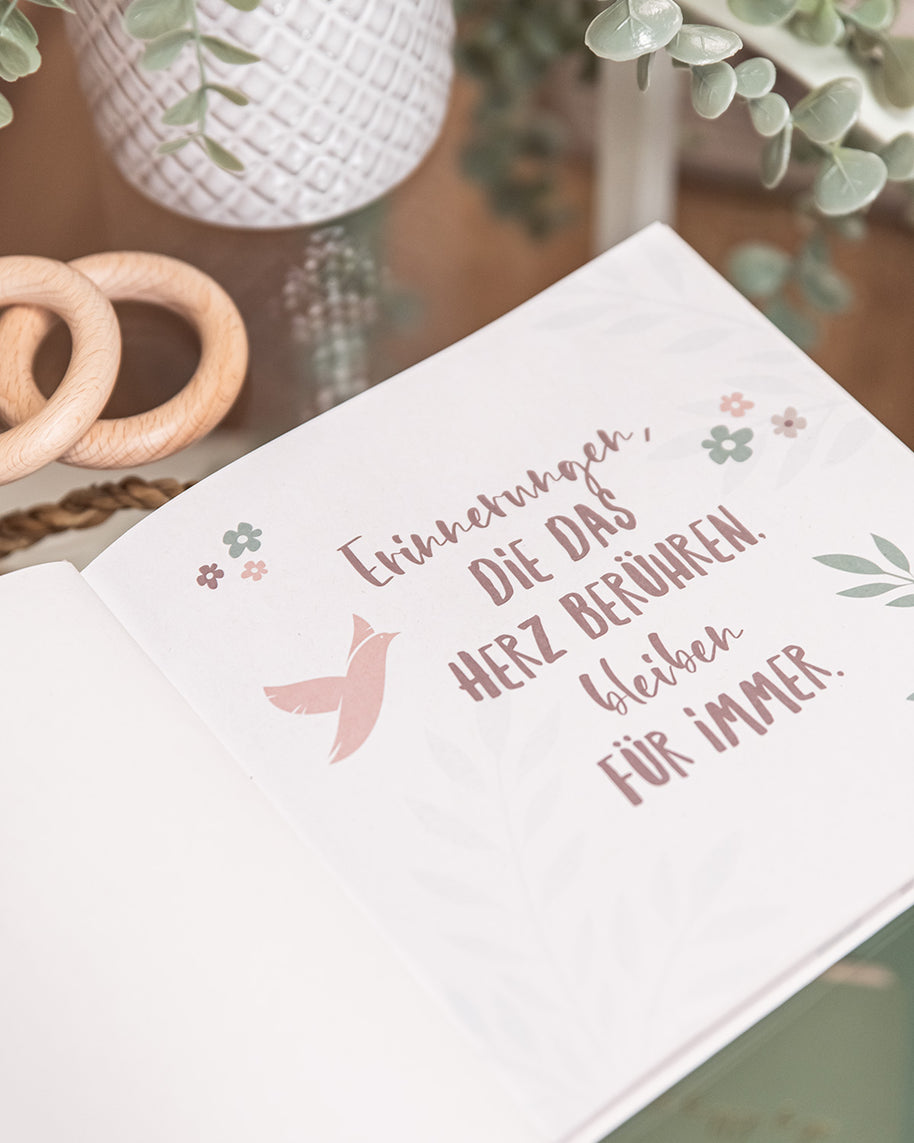 Erinnerungen,
DIE DAS
HERZ BERÜHREN,
bleiben
FÜR IMMER.